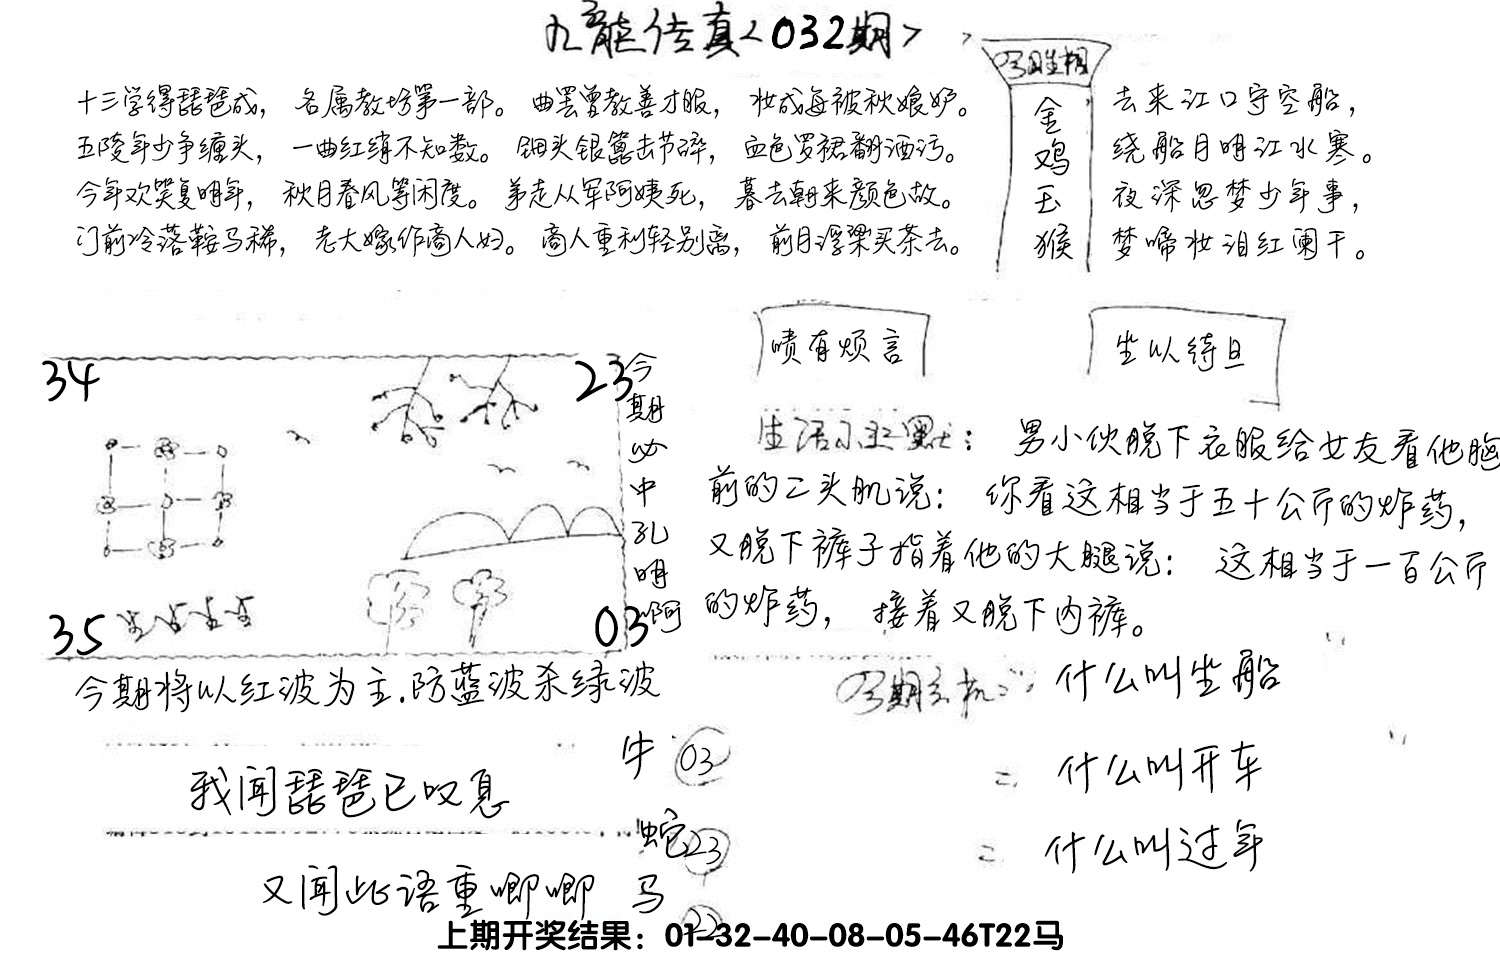 九龙传真<032期>
十三学得琵琶成，名属教坊第一部。曲罢曾教善才服，妆成每被秋娘妒。
五陵年少争缠头，一曲红绡不知数。钿头银篦击节碎，血色罗裙翻酒污。
今年欢笑复明年，秋月春风等闲度。弟走从军阿姨死，暮去朝来颜色故。
门前冷落鞍马稀，老大嫁作商人妇。商人重利轻别离，前月浮梁买茶去。
今期生相
金鸡玉猴
去来江口守空船，
绕船月明江水寒。
夜深忽梦少年事，
梦啼妆泪红阑干。
啧有烦言
坐以待旦
34
23
35
03
今期必中孔明啊
今期将以红波为主.防蓝波杀绿波
男小伙脱下衣服给女友看他胸
前的二头肌说：你看这相当于五十公斤的炸药，
又脱下裤子指着他的大腿说：这相当于一百公斤
的炸药，接着又脱下内裤。
今期玄机
什么叫坐船
二 什么叫开车
二 什么叫过年
我闻琵琶已叹息
又闻此语重唧唧
牛 03
蛇 23
马 22
上期开奖结果：01-32-40-08-05-46T22马